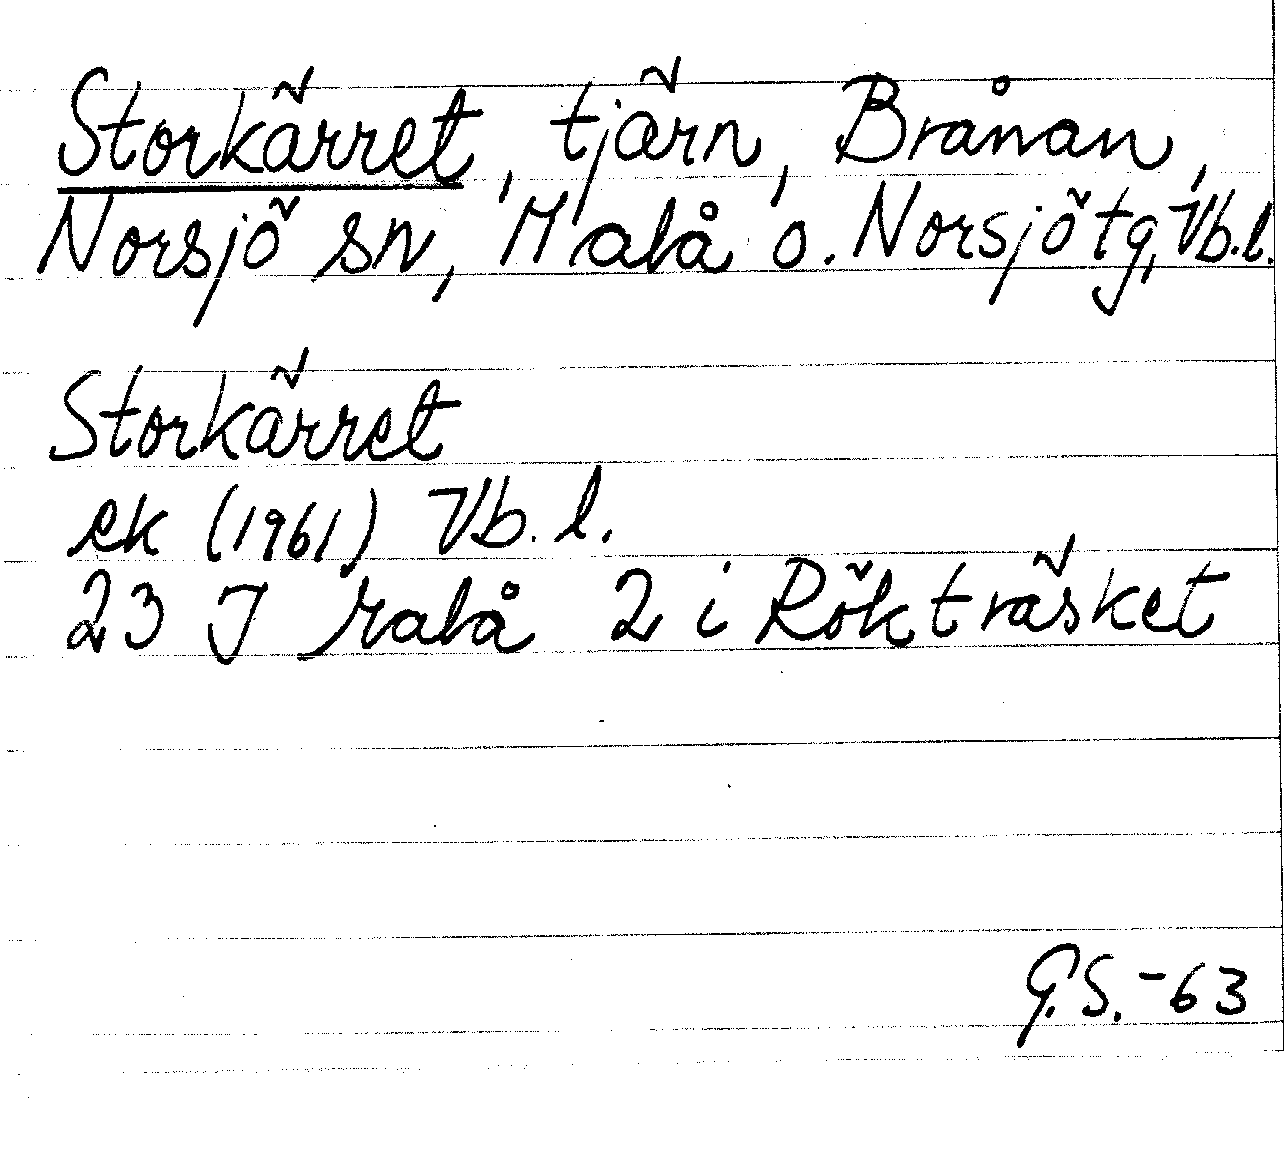 Storkärret, tjärn, Brånan,
Norsjö sn, Malå o. Norsjö tg, Vb.l.
Storkärret
ek (1961) Vb. l.
23 J Malå 2 i Rökträsket
G.S.-63